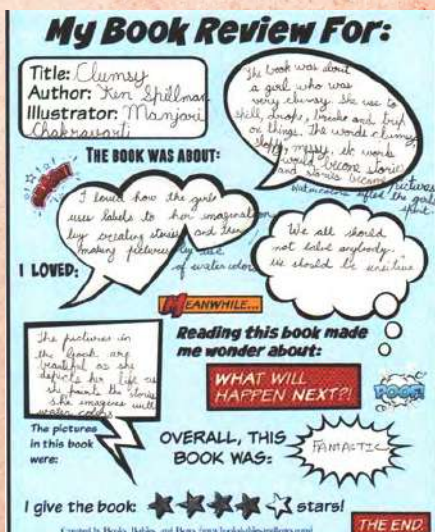 My Book Review For:
Title: Clumsy
Author: Ken Spillman
Illustrator: Manjari
Chakravarti
THE BOOK WAS ABOUT:
The book was about
a girl who was
very clumsy. She use to
spill, drops, breaks and trip
on things. The words clumsy,
sloppy, messy, etc words
would become stories
and stories become pictures
watercolors after the girls
spirit.
I LOVED:
I loved how the girls
uses labels to her imagination
by creating stories and then
making pictures by use
of water colors
We all should
not label anybody.
We should be sensitive
MEANWHILE...
Reading this book made
me wonder about:
The pictures in
the book are
beautiful as she
depicts her life as
she paints the stories
she imagines with
water colors
The pictures
in this book
were:
WHAT WILL
HAPPEN NEXT?!
POOF!
OVERALL, THIS
BOOK WAS:
FANTASTIC
I give the book: stars!
Created by Books, Babies, and Bows
THE END